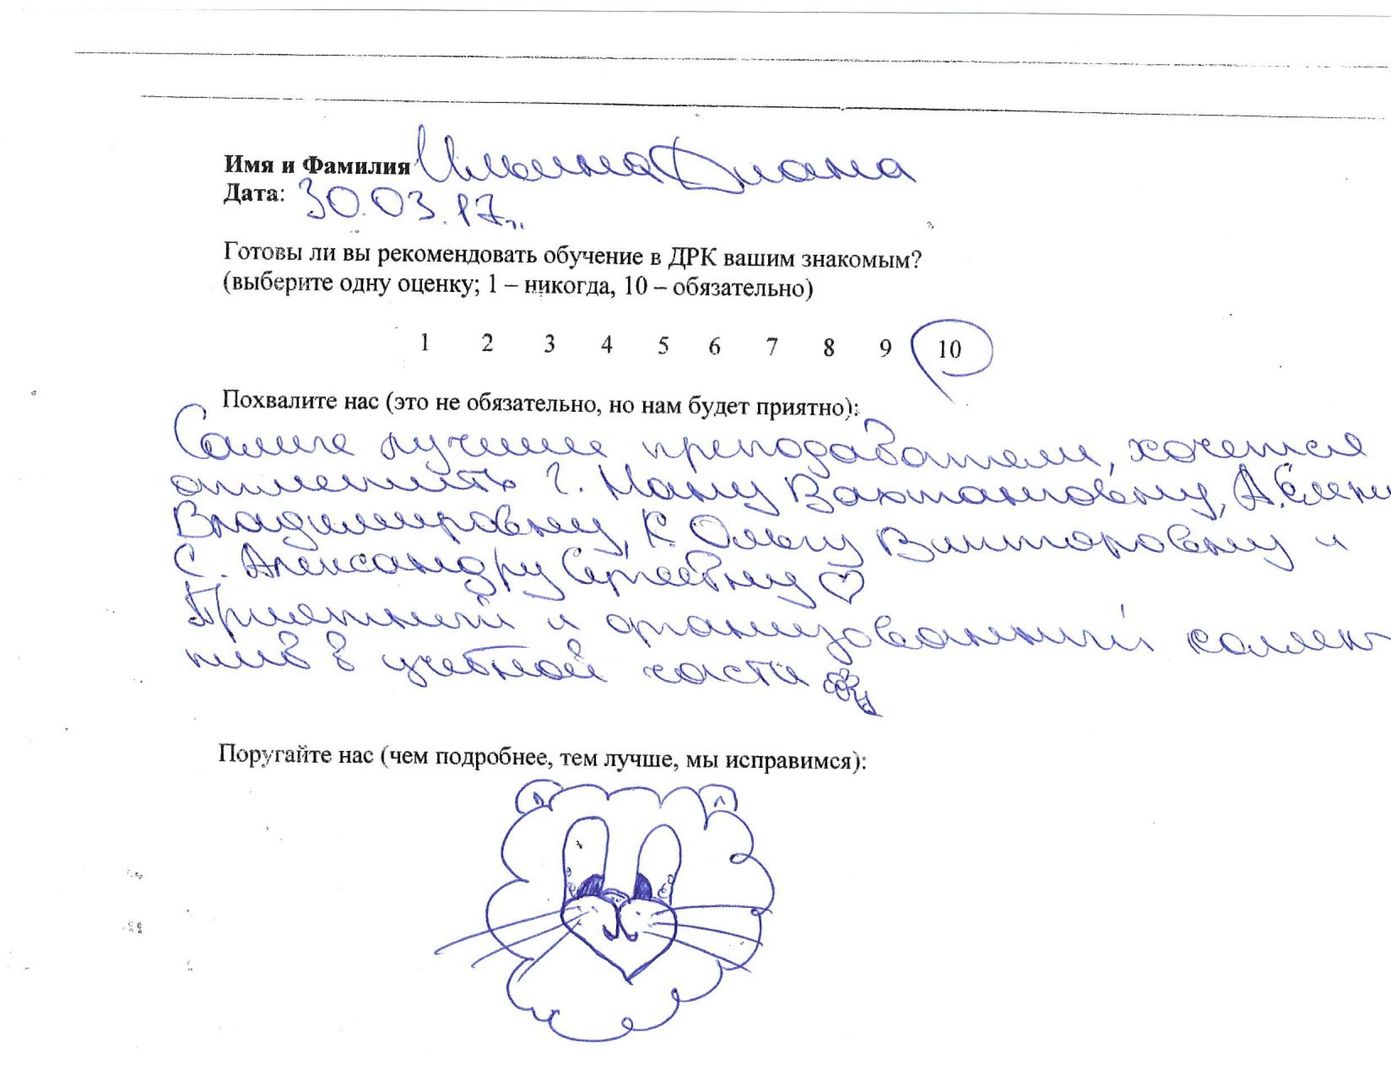 Имя и Фамилия Ильина Диана
Дата: 30.03.17г.
Готовы ли вы рекомендовать обучение в ДРК вашим знакомым?
(выберите одну оценку; 1 – никогда, 10 – обязательно)
1 2 3 4 5 6 7 8 9 10
Похвалите нас (это не обязательно, но нам будет приятно):
Самые лучшие преподаватели, хочется
отметить Г. Нану Вахтанговну, А. Елену
Владимировну, К. Ольгу Викторовну и
С. Александру Сергеевну
Приятный и организованный коллек-
тив в учебной части
Поругайте нас (чем подробнее, тем лучше, мы исправимся):